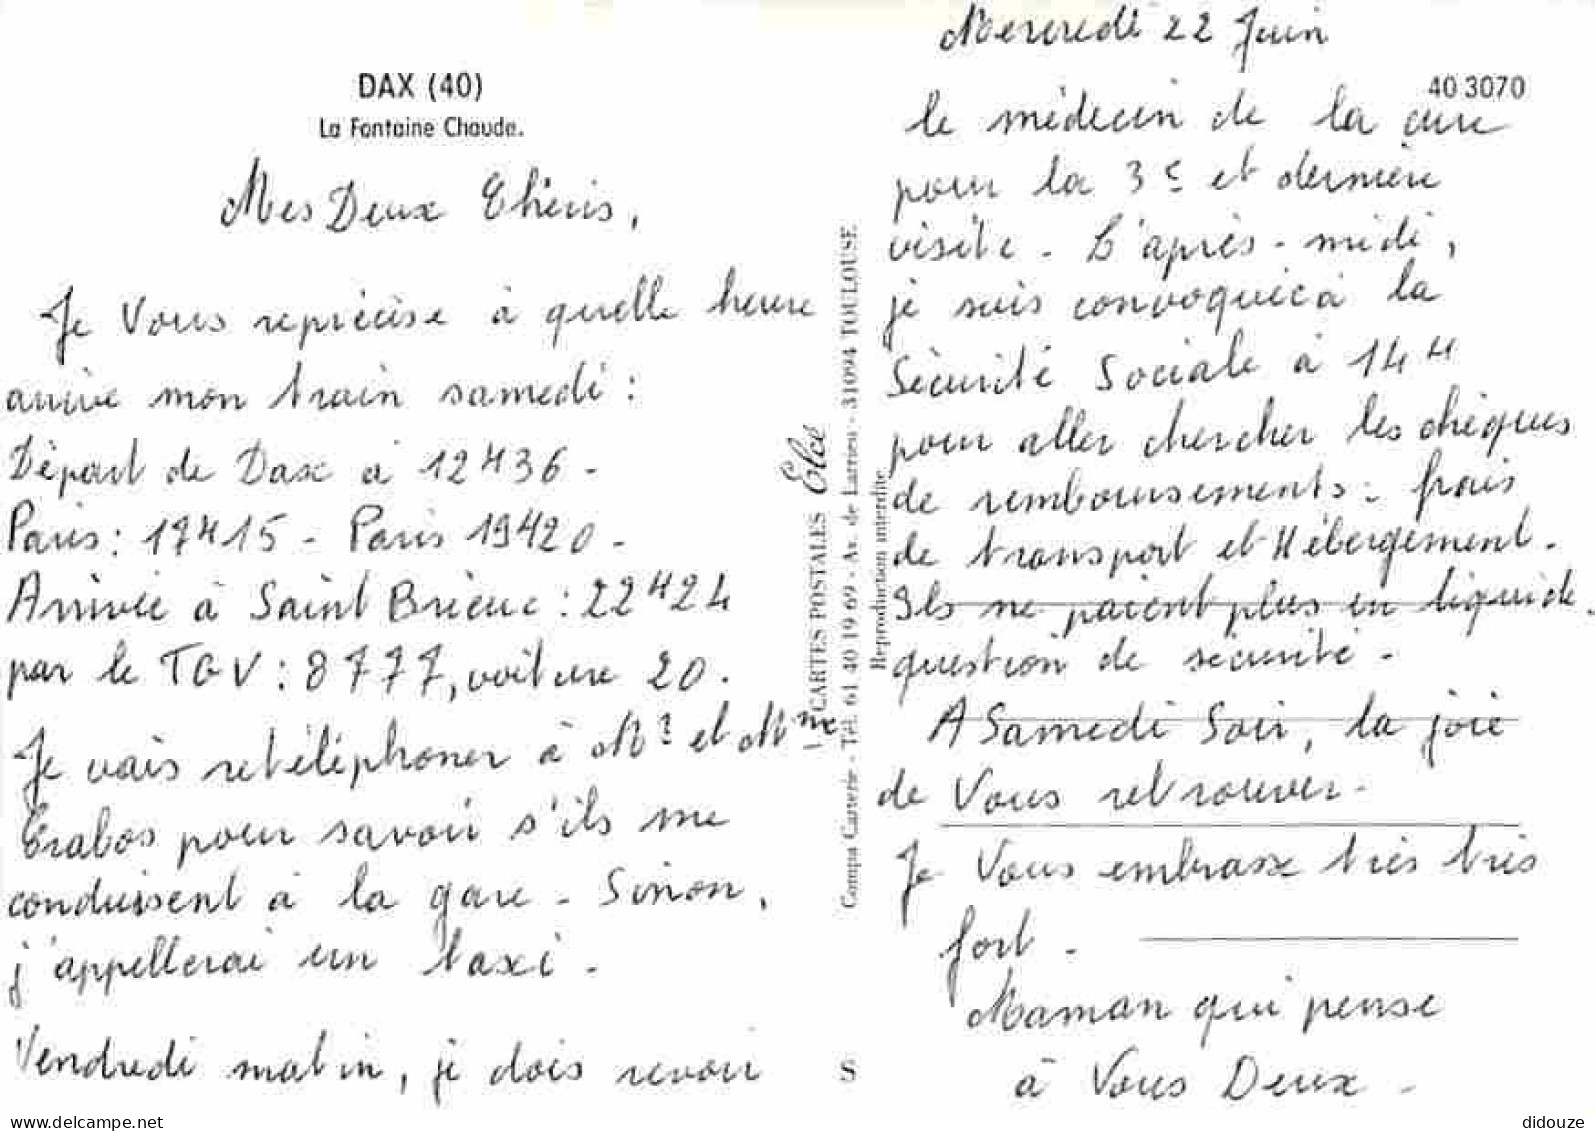 DAX (40)
La Fontaine Chaude.
Mes Deux Chéris,
Je Vous reprécise à quelle heure
arrive mon train samedi :
Départ de Dax à 12H36 -
Paris : 17H15 - Paris 19H20 -
Arrivée à Saint Brieuc : 22H24
par le TGV : 8777, voiture 20.
Je vais retéléphoner à Mr et Mme
Crabos pour savoir s'ils me
conduisent à la gare - Sinon,
j'appellerai un taxi -
Vendredi matin, je dois revoir
CARTES POSTALES Elcé
Compa Carterie - Tél. 61 40 19 69 - Av. de Larrieu - 31094 TOULOUSE
Reproduction interdite
S
Mercredi 22 Juin
40 3070
le médecin de la cure
pour la 3e et dernière
visite - L'après-midi,
je suis convoquée à la
Sécurité Sociale à 14H
pour aller chercher les chèques
de remboursements : frais
de transport et Hébergement.
Ils ne paient plus en liquide.
question de sécurité -
A Samedi Soir, la joie
de Vous retrouver -
Je Vous embrasse très très
fort -
Maman qui pense
à Vous Deux -
www.delcampe.net
didouze